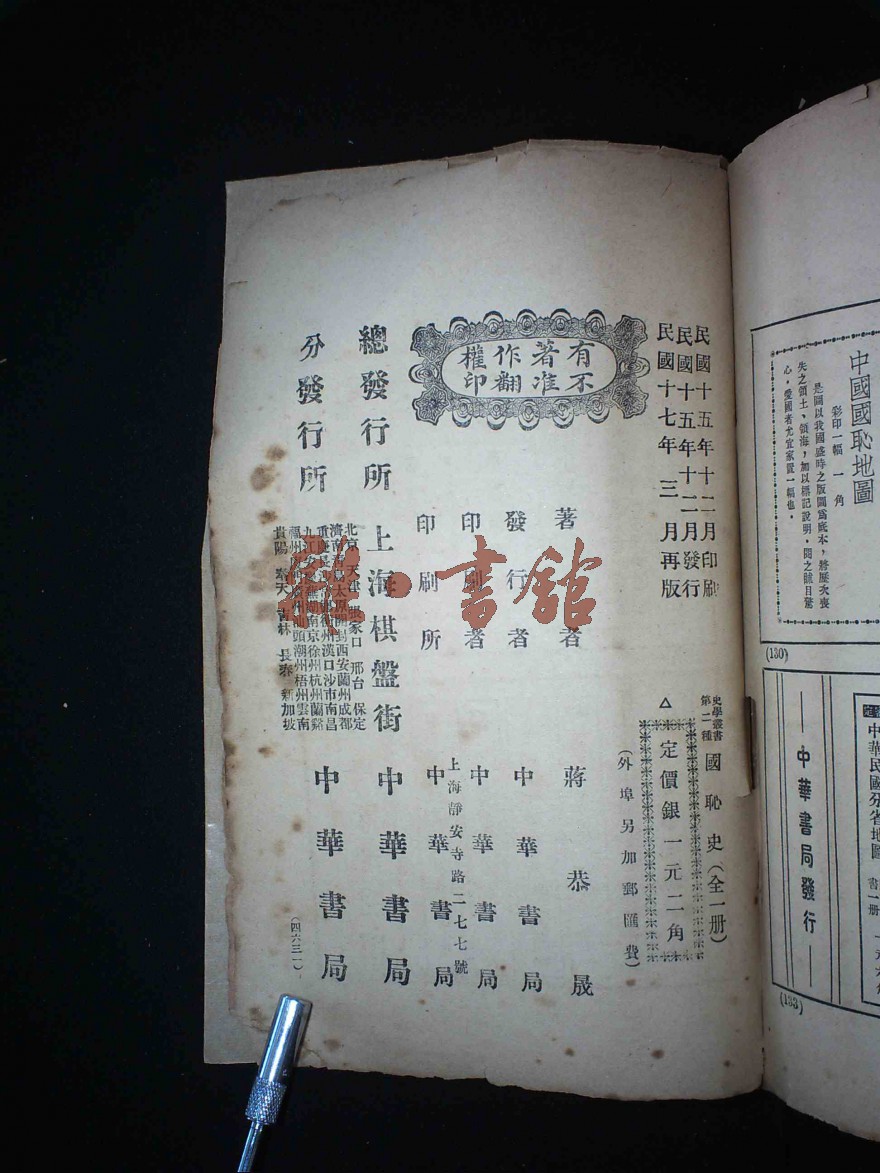 民國十五年十二月印刷
民國十五年十二月發行
民國十七年 三 月再版
史學叢書
第二種
國恥史(全一册)
△定價銀一元二角
(外埠另加郵匯費)
有著作權
不准翻印
著者 蔣恭晟
發行者 中華書局
印刷者 中華書局
上海靜安寺路二七七號
印刷所 中華書局
總發行所 上海棋盤街 中華書局
分發行所
北京 天津 張家口 邢台 保定
濟南青島太原開封西安蘭州成都
衡州漢口沙市南昌
蕪湖南京徐州杭州蘭谿
汕頭潮州梧州雲南
貴陽 奉天 吉林 長春 新加坡
中華書局
(四六三一)
雒·書舘
中國國恥地圖
彩印一幅 一角
是圖以我國盛時之版圖爲底本,將歷次喪
失之領土、領海,加以標記說明。閱之觸目驚
心,愛國者尤宜家置一幅也。
(130)
中華民國分省地圖
書一册
中華書局發行
(133)